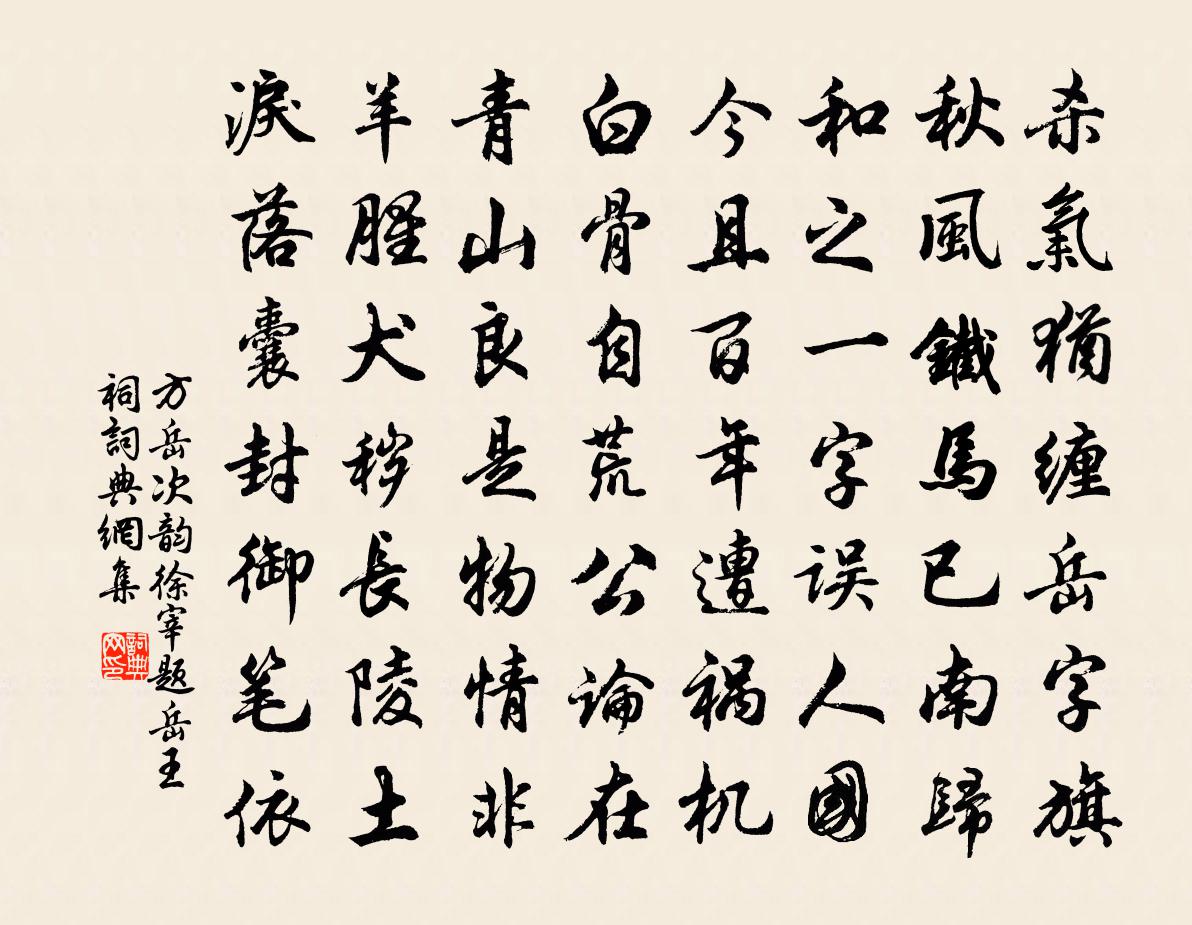 杀氣猶缠岳字旗
秋風鐵馬已南歸
和之一字误人國
今且百年遭祸机
白骨自荒公論在
青山良是物情非
羊腥犬秽長陵土
淚落囊封御笔依
方岳次韵徐宰题岳王
祠詞典網集
詞典网印